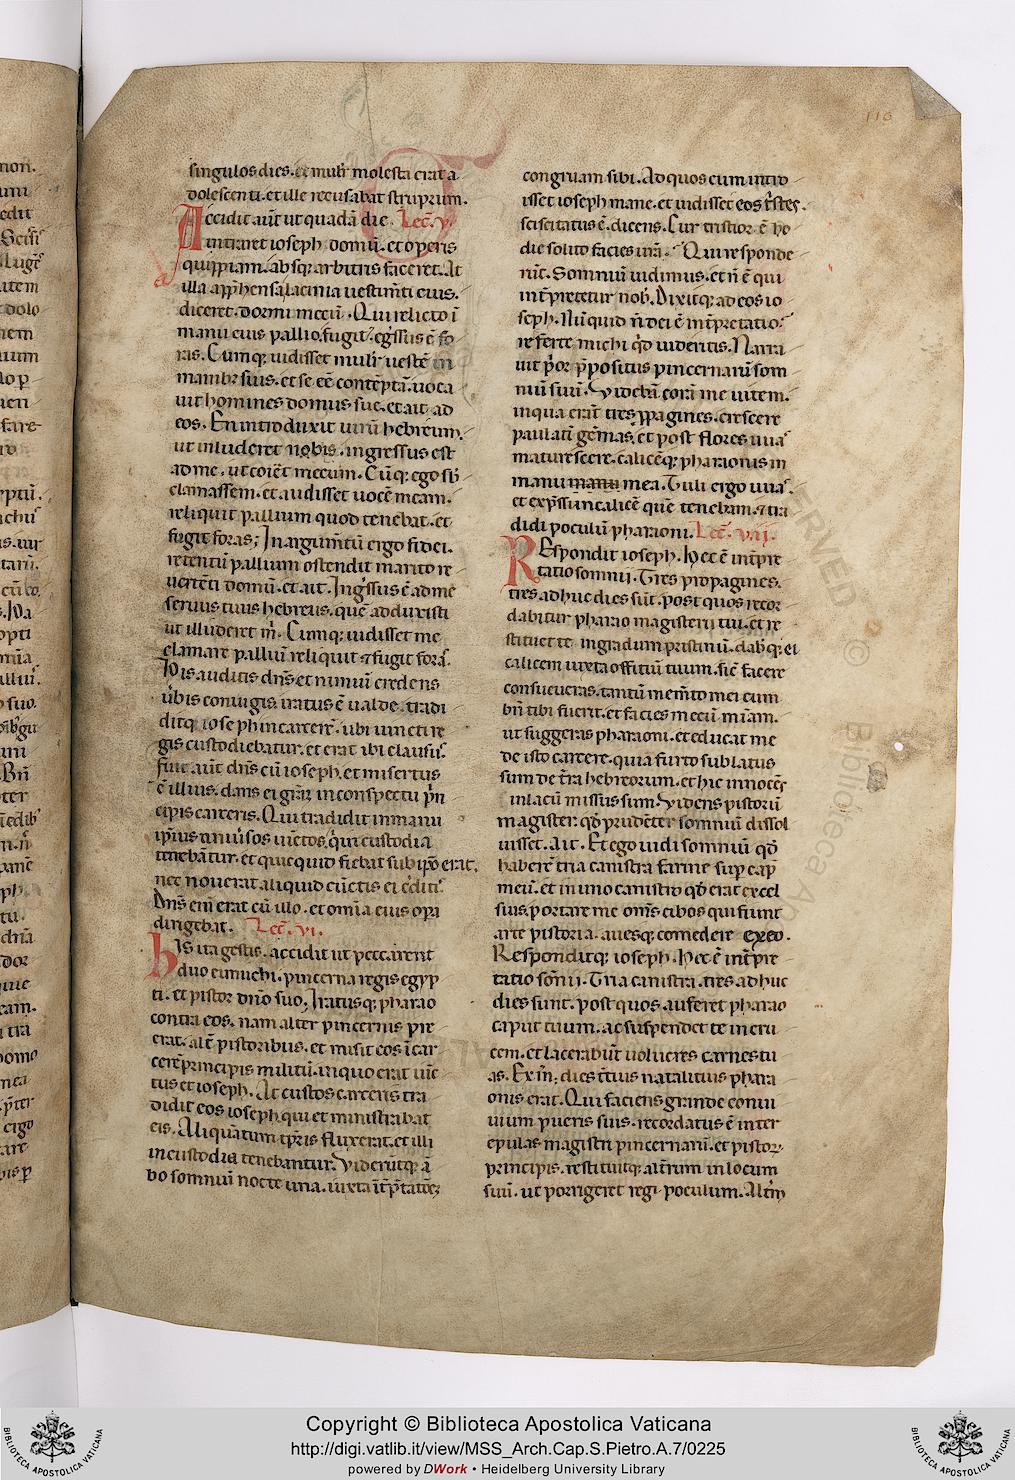 110
singulos dies. et mulr̄ molesta erat a
dolescenti. et ille recusabat struprum.
Accidit aūt ut quadā die Lec̄. v.
intraret ioseph domū. et operis
quippiam. absq; arbitris faceret. At
illa app̄hensa lacinia uestim̄ti eius.
diceret. dormi mecū. Qui relicto ī
manu eius pallio. fugit. eḡssus ē fo
ras. Cumq; uidisset mulr̄ uestē in
manibꝫ suis. et se eē contēptā. uoca
uit homines domus sue. et ait ad
eos. En introduxit uirū hebreum.
ut inluderet nobis. ingressus est
ad me. ut coiret mecum. Cūq; ego sb̄
clamassem. et audisset uocē meam.
reliquit pallium quod tenebat. et
fugit foras; In argum̄tū ergo fidei.
retentū pallium ostendit marito re
uertēti domū. et ait. Inḡssus ē ad me
seruus tuus hebreus. quē adduxisti
ut illuderet m̄. Cumq; uidisset me
clamare palliū reliquit ⁊ fugit foras.
His auditis dn̄s et nimiū credens
ūbis coniugis. iratus ē ualde. tradi
ditq; ioseph in carcerē. ubi uincti re
gis custodiebatur. et erat ibi clausus.
fuit aūt dn̄s cū ioseph. et misertus
ē illius. dans ei gr̄am in conspectu p̄n
cipis carceris. Qui tradidit in manu
ip̄ius uniūsos uīctos. qui custodia
tenebāntur. et quicquid fiebat sub ip̄o erat.
nec nouerat aliquid cūctis ei c̄ditis.
Dn̄s eni erat cū illo. et om̄ia eius op̄a
dirigebat. Lec̄. vi.
His ita gestis. accidit ut peccarent
duo eunuchi. pincerna regis egyp
ti. et pistor dn̄o suo. Iratusq; pharao
contra eos. nam alter pincernis pre
erat. alt̄ pistoribus. et misit eos ī car
cerē principis militū. in quo erat uīc
tus et ioseph. At custos carceris tra
didit eos ioseph qui et ministrabat
eis. Aliquātum tp̄ris fluxerat. et illi
in custodia tenebantur. Viderūtq; ā
bo somniū nocte una. iuxta īt̄p̄tatiōē
congruam sibi. Ad quos cum intro
isset ioseph mane. et uidisset eos t̄stes.
sciscitatus ē. dicens. Cur tristior ē ho
die solito facies ur̄a. Qui responde
rūt. Somniū uidimus. et n̄ ē qui
int̄pretetur nob̄. Dixitq; ad eos io
seph. Nūquid n̄ dei ē int̄pretatio?
referte michi qd̄ uideritis. Narra
uit p̄or p̄positus pincernarū som
niū suū. Videbā corā me uitem.
in qua erāt tres p̱pagines. crescere
paulatī gēmas. et post flores uuas
maturescere. calicēq; pharaonis in
manu manu mea. Tuli ergo uuas.
et exp̄ssi in calicē quē tenebam. ⁊ tra
didi poculū pharaoni. Lec̄. vii.
Respondit ioseph. Hec ē int̄pre
tatio somnii. Tres propagines.
tres adhuc dies sūt. post quos recor
dabitur pharao magisterii tui. et re
stituet te in gradum pristinū. dabq; ei
calicem iuxta offitiū tuum. sic̄ facere
consueueras. tantū mem̄to mei cum
bn̄ tibi fuerit. et facies mecū mīam.
ut suggeras pharaoni. et educat me
de isto carcere. quia furto sublatus
sum de t̄ra hebreorum. et hic innocēs
in lacū missus sum. Videns pistorū
magister. qd̄ prudēter somniū dissol
uisset. ait. Et ego uidi somniū qd̄
haberē tria canistra farine sup̄ cap̄
meū. et in uno canistro qd̄ erat excel
sius. portare me om̄s cibos qui fiunt
arte pistoria. auesq; comedere ex eo.
Responditq; ioseph. Hec ē int̄pre
tatio sōnii. Tria canistra. tres adhuc
dies sunt. post quos auferet pharao
caput tuum. ac suspendet te in cru
cem. et lacerabūt uolucres carnes tu
as. Exin; dies t̄tius natalitius phara
onis erat. Qui faciens grande conui
uium pueris suis. recordatus ē inter
epulas magistri pincernarū. et pistorꝝ
principis. restituitq; alt̄rum in locum
suū. ut porrigeret regi poculum. Alt̄m
Copyright © Biblioteca Apostolica Vaticana
http://digi.vatlib.it/view/MSS_Arch.Cap.S.Pietro.A.7/0225
powered by DWork • Heidelberg University Library